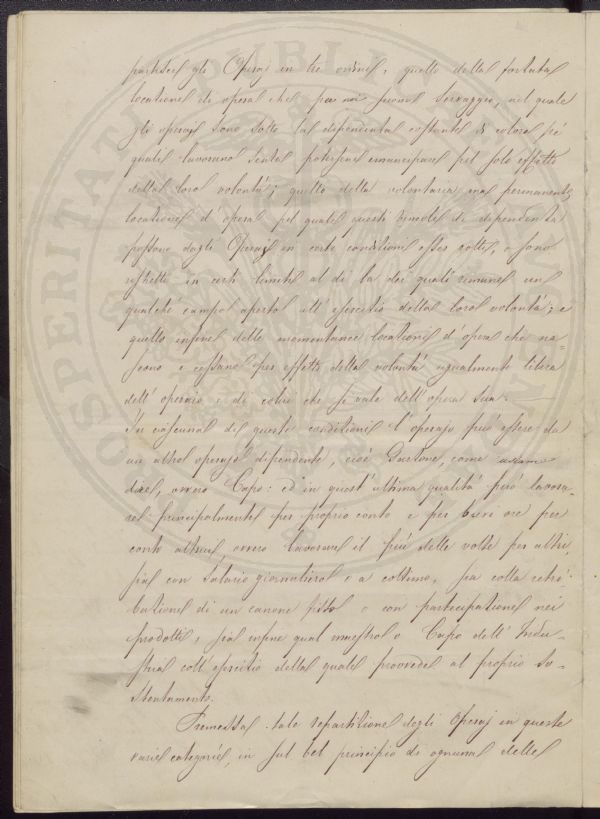 partisce gli Operaj in tre ordini, quello della forzata
locazione di opera che per noi suona Servaggio, nel quale
gli operaj sono sotto la dipendenza costante di coloro pei
quali lavorano senza potersene emancipare pel solo effetto
della loro volontà; quello della volontaria ma permanente
locazione d'opera pel quale questi vincoli di dipendenza
possono dagli Operaj in certe condizioni esser rotti, o sono
ristretti in certi limiti al di là dei quali rimane un
qualche campo aperto all'esercizio della loro volontà; e
quello infine delle momentanee locazioni d'opera che na=
scono e cessano per effetto della volontà ugualmente libera
dell'operajo e di colui che si vale dell'opera sua.
In ciascuna di queste condizioni l'operajo può essere da
un altro operajo dipendente, cioè Garzone, come
ovvero Capo: ed in quest'ultima qualità però lavora=
re principalmente per proprio conto e per brevi ore per
conto altrui, ovvero lavorare il più delle volte per altri,
sia con Salario giornaliero o a cottimo, sia colla retri=
buzione di un canone fisso o con partecipazione nei
prodotti, sia infine qual maestro o Capo dell'Indu=
stria coll'esercizio della quale provvede al proprio So=
stentamento.
Premessa tale repartizione degli Operaj in queste
varie categorie, in sul bel principio di ognuna delle
PROSPERITATI PUBLICAE